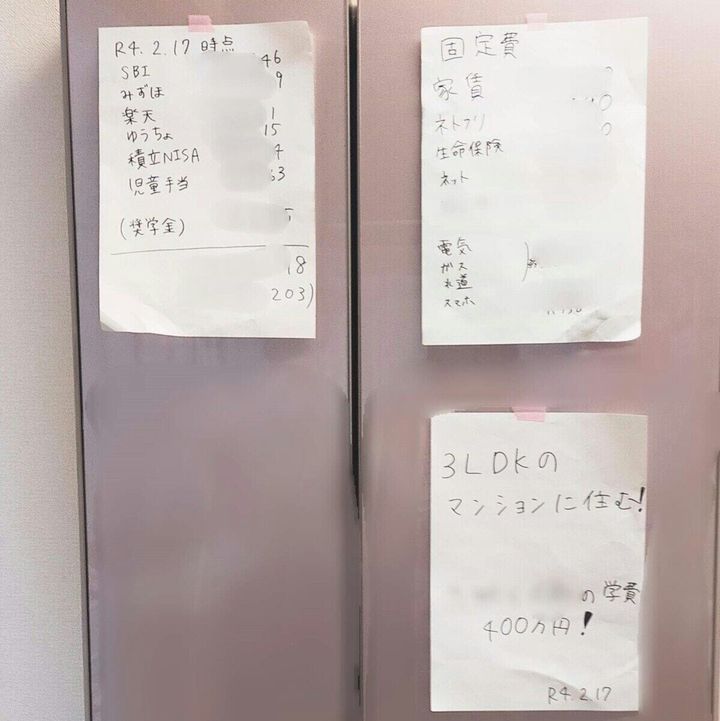 R4.2.17 時点
SBI 46
みずほ 9
楽天 1
ゆうちょ 15
積立NISA 4
児童手当 63
(奨学金)
18
203)
固定費
家賃
ネトフリ
生命保険
ネット
電気
ガス
水道
スマホ
3LDKの
マンションに住む!
の学費
400万円!
R4.2.17